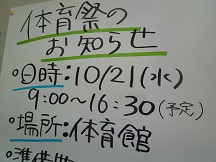 体育祭の
お知らせ
・日時:10/21(水)
9:00~16:30(予定)
・場所:体育館
・準備物